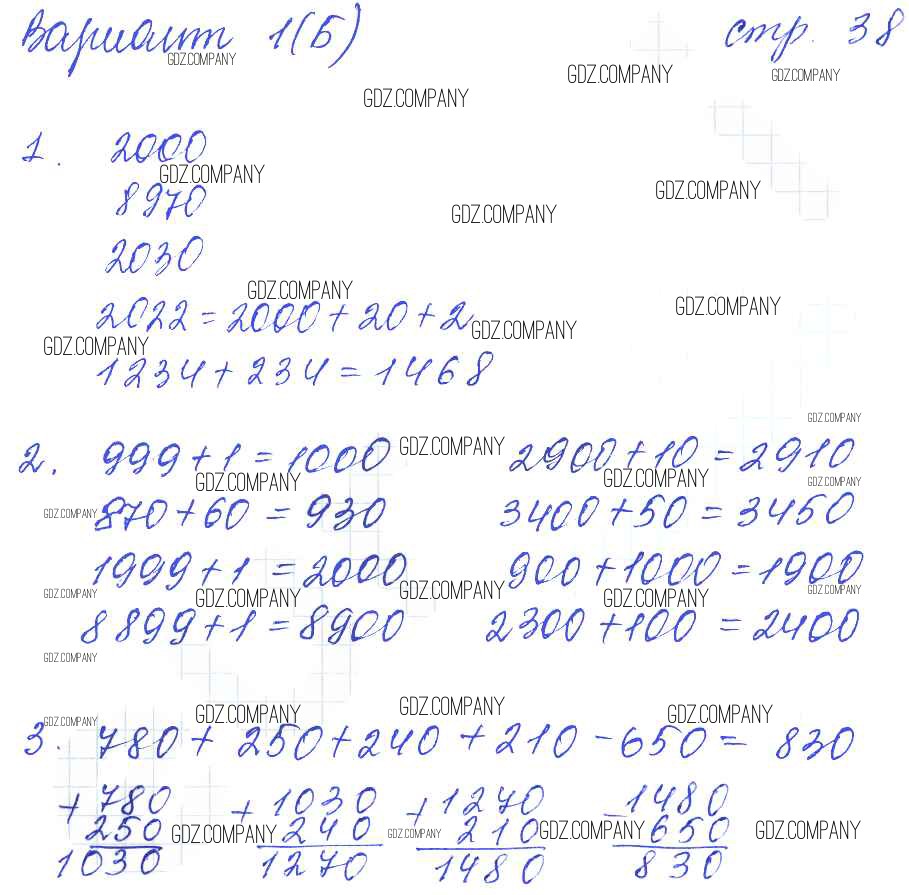 Вариант 1(Б) стр. 38
GDZ.COMPANY GDZ.COMPANY GDZ.COMPANY
GDZ.COMPANY
1. 2000
GDZ.COMPANY GDZ.COMPANY
8970 GDZ.COMPANY
2030
GDZ.COMPANY GDZ.COMPANY
2022 = 2000 + 20 + 2
GDZ.COMPANY GDZ.COMPANY
1234 + 234 = 1468
GDZ.COMPANY
2. 999 + 1 = 1000 GDZ.COMPANY 2900 + 10 = 2910
GDZ.COMPANY GDZ.COMPANY GDZ.COMPANY
GDZ.COMPANY 870 + 60 = 930 3400 + 50 = 3450
1999 + 1 = 2000 900 + 1000 = 1900
GDZ.COMPANY GDZ.COMPANY GDZ.COMPANY GDZ.COMPANY GDZ.COMPANY
8899 + 1 = 8900 2300 + 100 = 2400
GDZ.COMPANY
GDZ.COMPANY GDZ.COMPANY GDZ.COMPANY GDZ.COMPANY
3. 780 + 250 + 240 + 210 - 650 = 830
+ 780 + 1030 + 1270 - 1480
250 GDZ.COMPANY 240 GDZ.COMPANY 210 GDZ.COMPANY 650 GDZ.COMPANY
1030 1270 1480 830